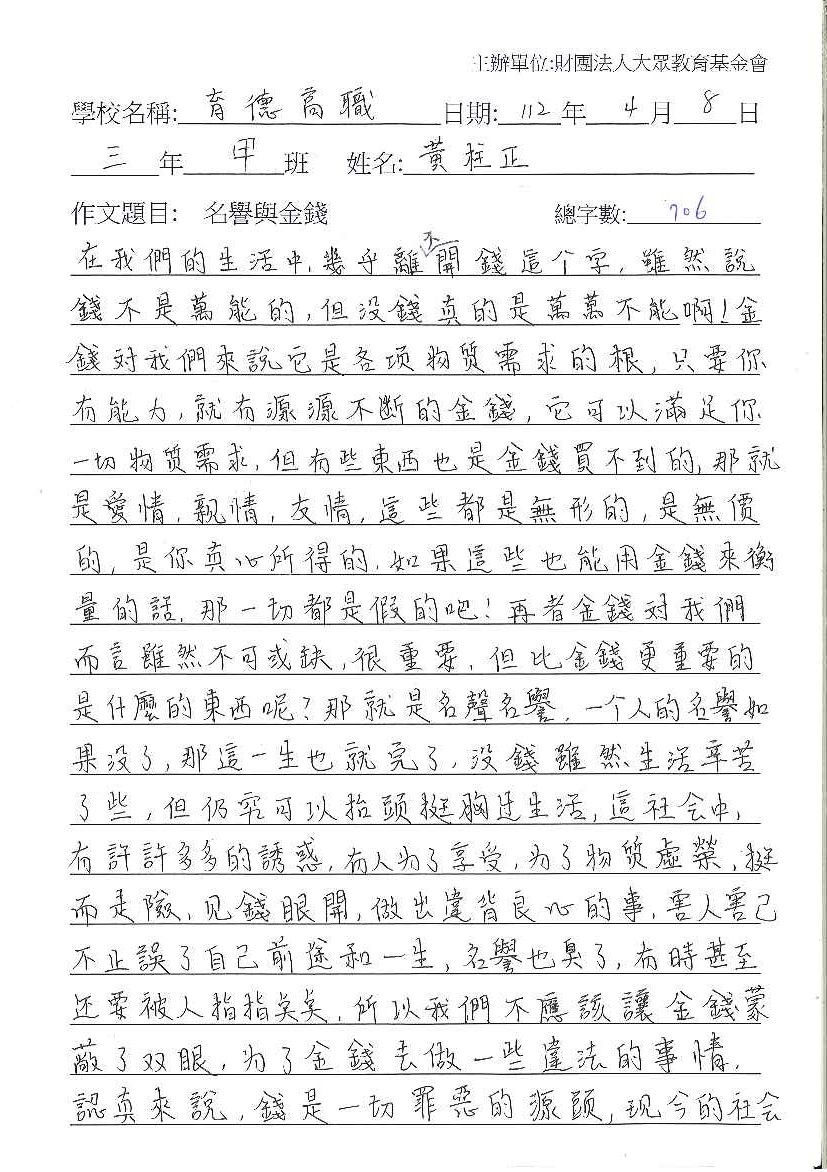 主辦單位:財團法人大眾教育基金會
學校名稱: 育德高職 日期: 112 年 4 月 8 日
三 年 甲 班 姓名: 黃柱正
作文題目: 名譽與金錢 總字數: 706
在我們的生活中,幾乎離不開錢這个字,雖然說
錢不是萬能的,但没錢真的是萬萬不能啊!金
錢对我們來說它是各项物质需求的根,只要你
有能力,就有源源不断的金錢,它可以滿足你
一切物质需求,但有些東西也是金錢買不到的,那就
是愛情,親情,友情,這些都是無形的,是無價
的,是你真心所得的,如果這些也能用金錢來衡
量的話,那一切都是假的吧!再者金錢对我們
而言雖然不可或缺,很重要,但比金錢更重要的
是什麼的東西呢?那就是名聲名譽,一个人的名譽如
果没了,那這一生也就完了,没錢雖然生活辛苦
了些,但仍可以抬頭挺胸过生活,這社会中,
有許許多多的誘惑,有人为了享受,为了物质虛榮,挺
而走險,见錢眼開,做出違背良心的事,害人害己
不止誤了自己前途和一生,名譽也臭了,有時甚至
还要被人指指矣矣,所以我們不應該讓金錢蒙
蔽了双眼,为了金錢去做一些違法的事情,
認真來說,錢是一切罪惡的源頭,现今的社会